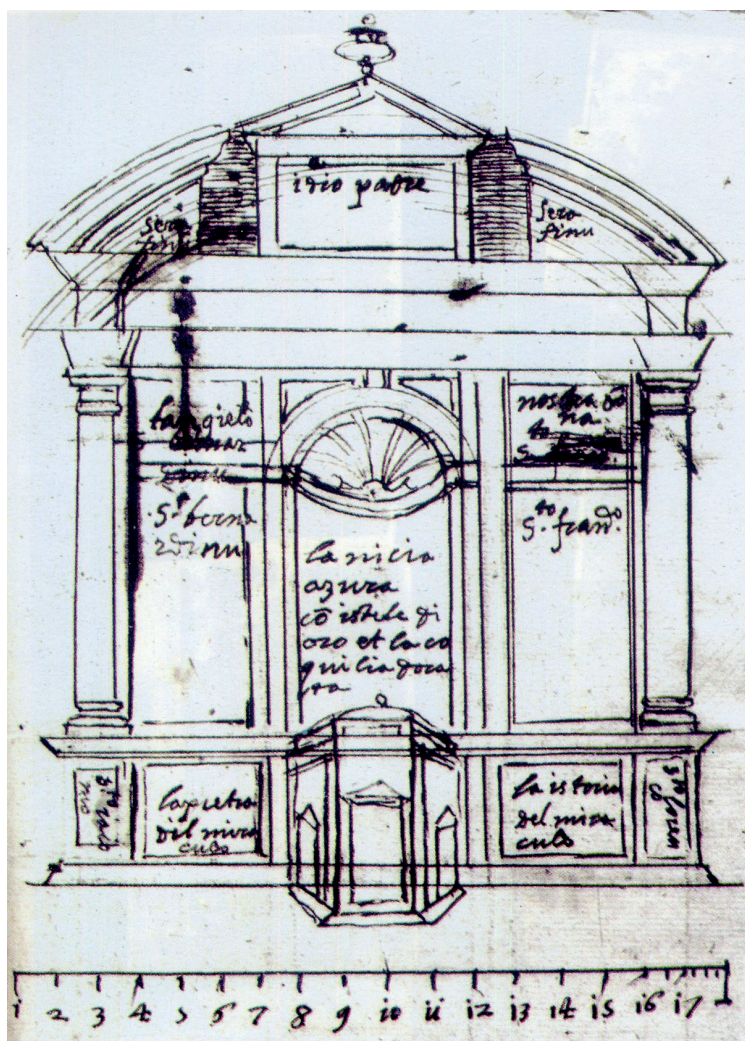 idio patre
sera
finu
sera
finu
langielo
nostra
S.to berna
rdinu
S.to fran.co
la nicia
azura
cō istele di
oro et la co
quilia dora
ta
la pietra
del mira
culo
la istoria
del mira
culo
1 2 3 4 5 6 7 8 9 10 11 12 13 14 15 16 17